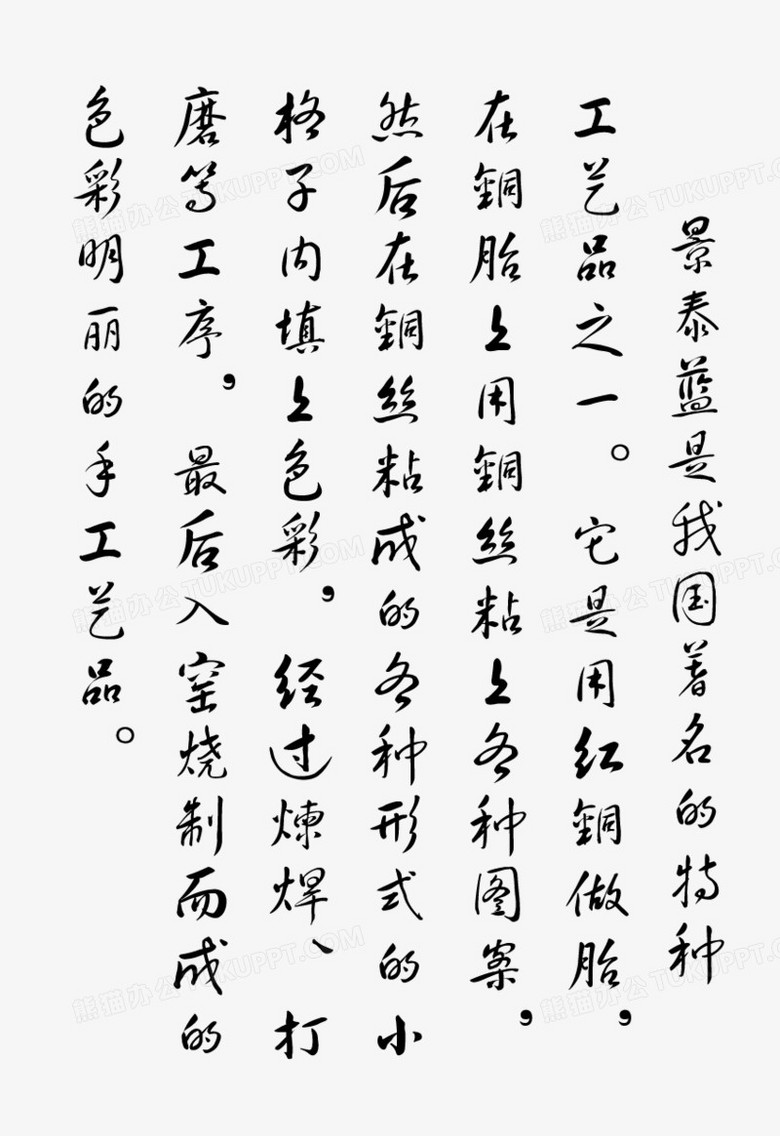 景泰蓝是我国著名的特种
工艺品之一。它是用红銅做胎，
在銅胎上用銅丝粘上各种图案，
然后在銅丝粘成的各种形式的小
格子内填上色彩，经过煉焊、打
磨等工序，最后入窑烧制而成的
色彩明丽的手工艺品。
熊猫办公 TUKUPPT.COM
熊猫办公 TUKUPPT.COM
熊猫办公 TUKUPPT.COM
熊猫办公 TUKUPPT.COM
熊猫办公 TUKUPPT.COM
熊猫办公 TUKUPPT.COM